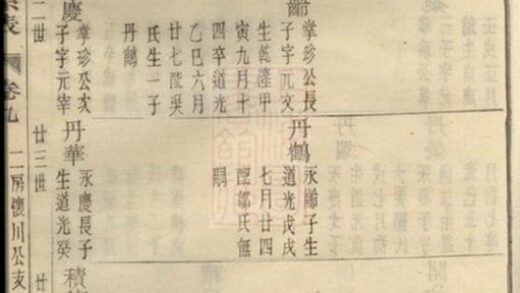 掌珍公長
子字元文
生乾隆甲
寅九月十
四卒道光
乙巳六月
廿七配吳
氏生一子
丹鶴
慶
掌珍公次
子字元宰
二世
丹鶴
永齡子生
道光戊戌
七月廿四
配氏無
嗣
丹華
永慶長子
生道光癸
廿三世
積
廿
表
卷九
二房懷川公支